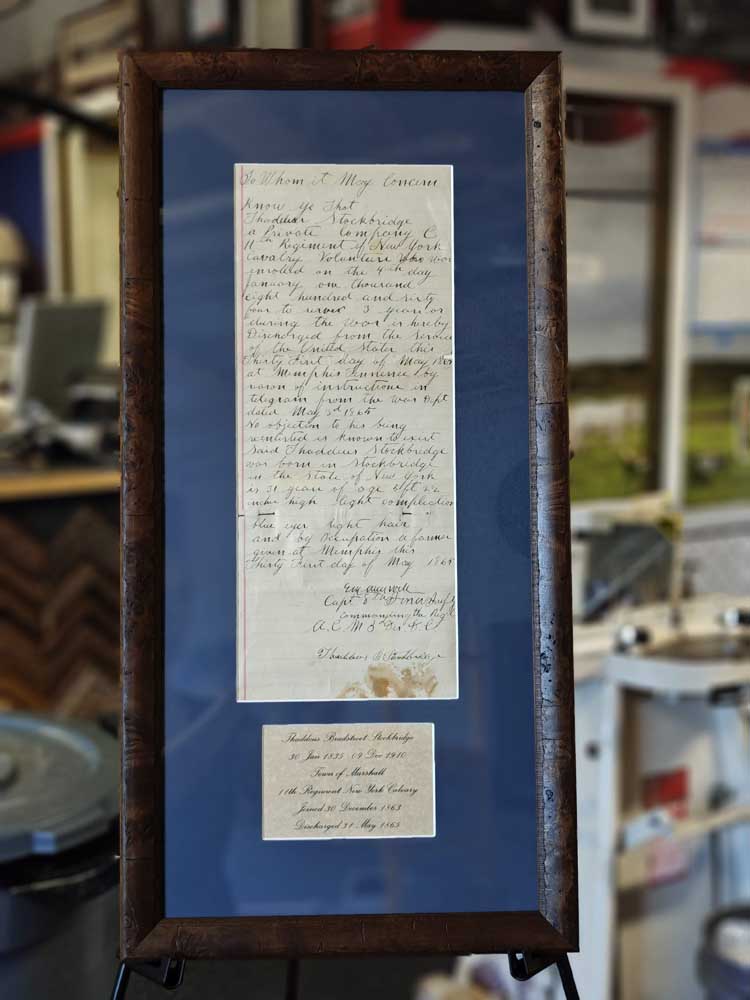 To Whom it May Concern
Know Ye That
Thaddeus Stockbridge
a Private Company C
11th Regiment of New York
Cavalry Volunteers who was
enroled on the 4th day
January one thousand
eight hundred and sixty
four to serve 3 years or
during the war is hereby
Discharged from the Service
of the United States this
Thirty First day of May 1865
at Memphis Tennessee by
reason of instructions in
telegram from the War Dept
dated May 3d 1865
No objection to his being
reenlisted is known to exist
Said Thaddeus Stockbridge
was born in Stockbridge
in the State of New York
is 31 years of age
inches high light complection
blue eyes light hair
and by Occupation a farmer
given at Memphis this
Thirty First day of May 1865
Capt
Commanding the Regt
A. C. M
Thaddeus B Stockbridge
Thaddeus Bradstreet Stockbridge
30 Jan 1835 - 09 Dec 1910
Town of Marshall
11th Regiment New York Calvary
Joined 30 December 1863
Discharged 31 May 1865